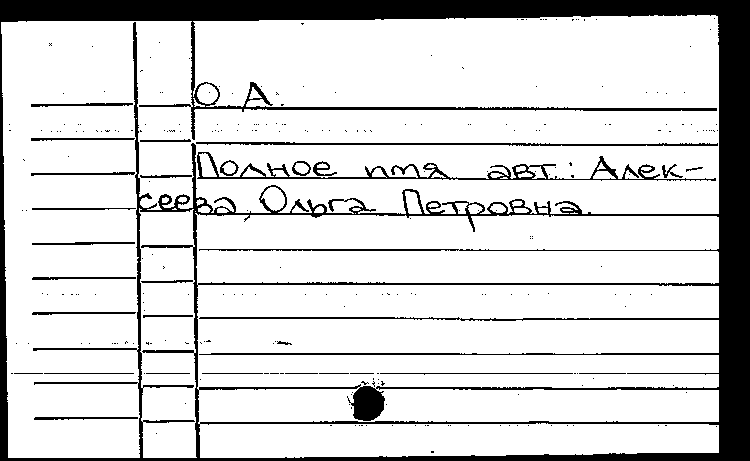 О А.
Полное имя авт.: Алек-
сеева, Ольга Петровна.